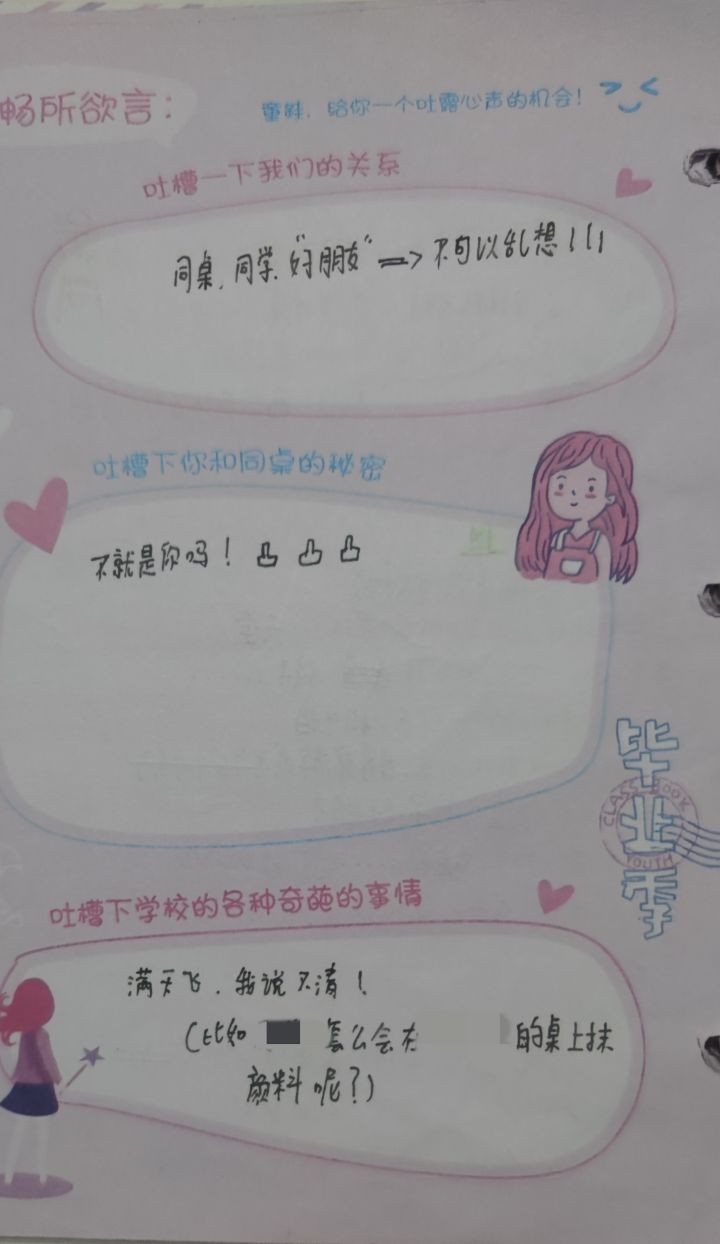 畅所欲言：
童鞋，给你一个吐露心声的机会！
吐槽一下我们的关系
同桌，同学，“好朋友”=>不可以乱想！！！
吐槽下你和同桌的秘密
不就是你吗！凸 凸 凸
毕业季
CLASS BOOK
YOUTH
吐槽下学校的各种奇葩的事情
满天飞，我说不清！
（比如 怎么会在 的桌上抹
颜料呢？）